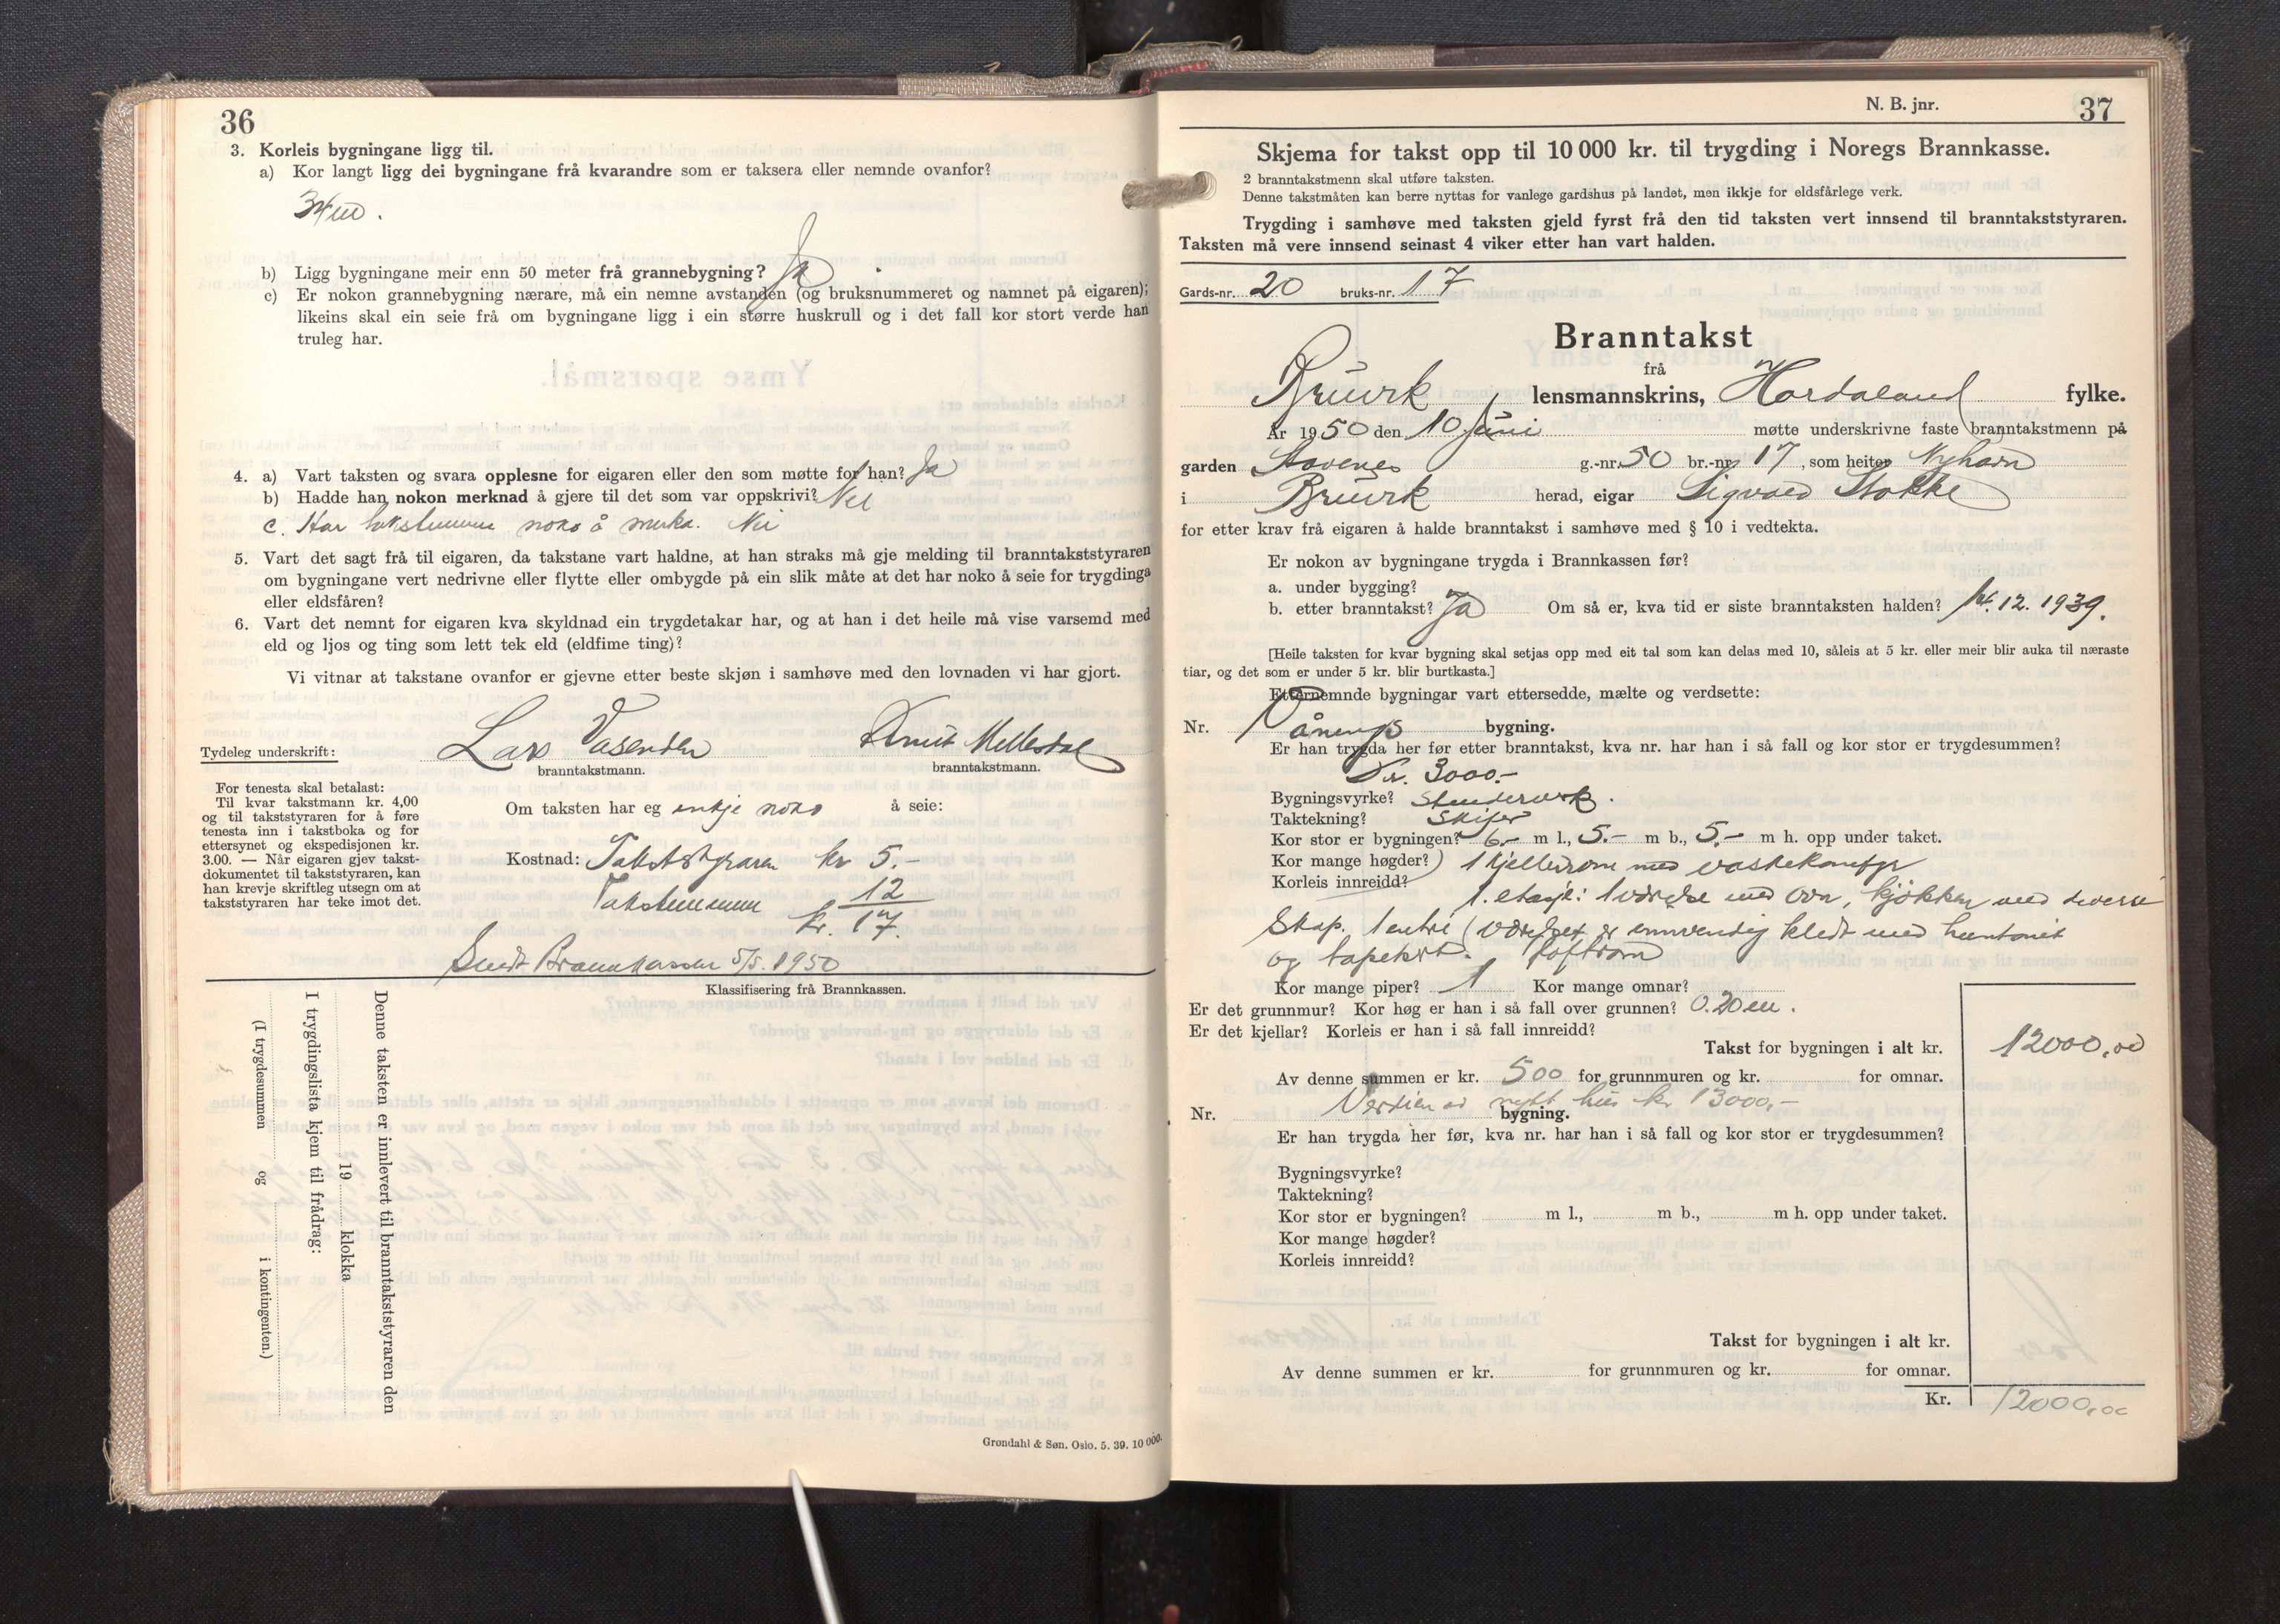 36
3. Korleis bygningane ligg til.
a) Kor langt ligg dei bygningane frå kvarandre som er taksera eller nemnde ovanfor?
b) Ligg bygningane meir enn 50 meter frå grannebygning? Ja
c) Er nokon grannebygning nærare, må ein nemne avstanden (og bruksnummeret og namnet på eigaren);
likeins skal ein seie frå om bygningane ligg i ein større huskrull og i det fall kor stort verde han
truleg har.
4. a) Vart taksten og svara opplesne for eigaren eller den som møtte for han? Ja
b) Hadde han nokon merknad å gjere til det som var oppskrivi? Nei
c. Har takstmenne noko å merka. Nei
5. Vart det sagt frå til eigaren, da takstane vart haldne, at han straks må gje melding til branntakststyraren
om bygningane vert nedrivne eller flytte eller ombygde på ein slik måte at det har noko å seie for trygdinga
eller eldsfåren?
6. Vart det nemnt for eigaren kva skyldnad ein trygdetakar har, og at han i det heile må vise varsemd med
eld og ljos og ting som lett tek eld (eldfime ting)?
Vi vitnar at takstane ovanfor er gjevne etter beste skjøn i samhøve med den lovnaden vi har gjort.
Tydeleg underskrift: Lars Vasenden Knut Mellesdal
branntakstmann. branntakstmann.
For tenesta skal betalast:
Til kvar takstmann kr. 4,00
og til takststyraren for å føre
tenesta inn i takstboka og for
ettersynet og ekspedisjonen kr.
3.00. — Når eigaren gjev takst-
dokumentet til takststyraren, kan
han krevje skriftleg utsegn om at
takststyraren har teke imot det.
Om taksten har eg inkje noko å seie:
Kostnad: Takststyraren kr 5.-
Takstmennene 12
kr. 17.
Sendt Brannkassen 5/5. 1950
Klassifisering frå Brannkassen.
Denne taksten er innlevert til branntakststyraren den
19 klokka
I trygdingslista kjem til frådrag:
(I trygdesummen og i kontingenten.)
Grøndahl & Søn. Oslo. 5. 39. 10 000.
N. B. jnr. 37
Skjema for takst opp til 10 000 kr. til trygding i Noregs Brannkasse.
2 branntakstmenn skal utføre taksten.
Denne takstmåten kan berre nyttas for vanlege gardshus på landet, men ikkje for eldsfårlege verk.
Trygding i samhøve med taksten gjeld fyrst frå den tid taksten vert innsend til branntakststyraren.
Taksten må vere innsend seinast 4 viker etter han vart halden.
Gards-nr. 20 bruks-nr. 17
Branntakst
frå
Bruvik lensmannskrins, Hordaland fylke.
År 1950 den 10 Juni møtte underskrivne faste branntakstmenn på
garden Stavenes g.-nr. 50 br.-nr. 17, som heiter Nyhavn
i Bruvik herad, eigar Sigvald Stokke
for etter krav frå eigaren å halde branntakst i samhøve med § 10 i vedtekta.
Er nokon av bygningane trygda i Brannkassen før?
a. under bygging?
b. etter branntakst? Ja Om så er, kva tid er siste branntaksten halden? 14.12.1939.
[Heile taksten for kvar bygning skal setjas opp med eit tal som kan delas med 10, såleis at 5 kr. eller meir blir auka til næraste
tiar, og det som er under 5 kr. blir burtkasta.]
Etternemnde bygningar vart ettersedde, mælte og verdsette:
Nr. 1 Vånings bygning.
Er han trygda her før etter branntakst, kva nr. har han i så fall og kor stor er trygdesummen?
Kr. 3000.-
Bygningsvyrke? Stenderverk.
Taktekning? Skifer
Kor stor er bygningen? 6.- m l., 5.- m b., 5.- m h. opp under taket.
Kor mange høgder? 1 kjellerrom med vaskekomfyr
Korleis innreidd? 1. etasje: 1 værelse med ovn, kjøkken med diverse
skap. 1 entré (værelset er innvendig kledt med huntonit
og tapetsert. Loftrom
Kor mange piper? 1 Kor mange omnar?
Er det grunnmur? Kor høg er han i så fall over grunnen? 0.20 m.
Er det kjellar? Korleis er han i så fall innreidd?
Takst for bygningen i alt kr. 12000,00
Av denne summen er kr. 500 for grunnmuren og kr. for omnar.
Verdien av nytt hus kr 13000,-
Nr. bygning.
Er han trygda her før, kva nr. har han i så fall og kor stor er trygdesummen?
Bygningsvyrke?
Taktekning?
Kor stor er bygningen? m l., m b., m h. opp under taket.
Kor mange høgder?
Korleis innreidd?
Takst for bygningen i alt kr.
Av denne summen er kr. for grunnmuren og kr. for omnar.
Kr. 12000,00